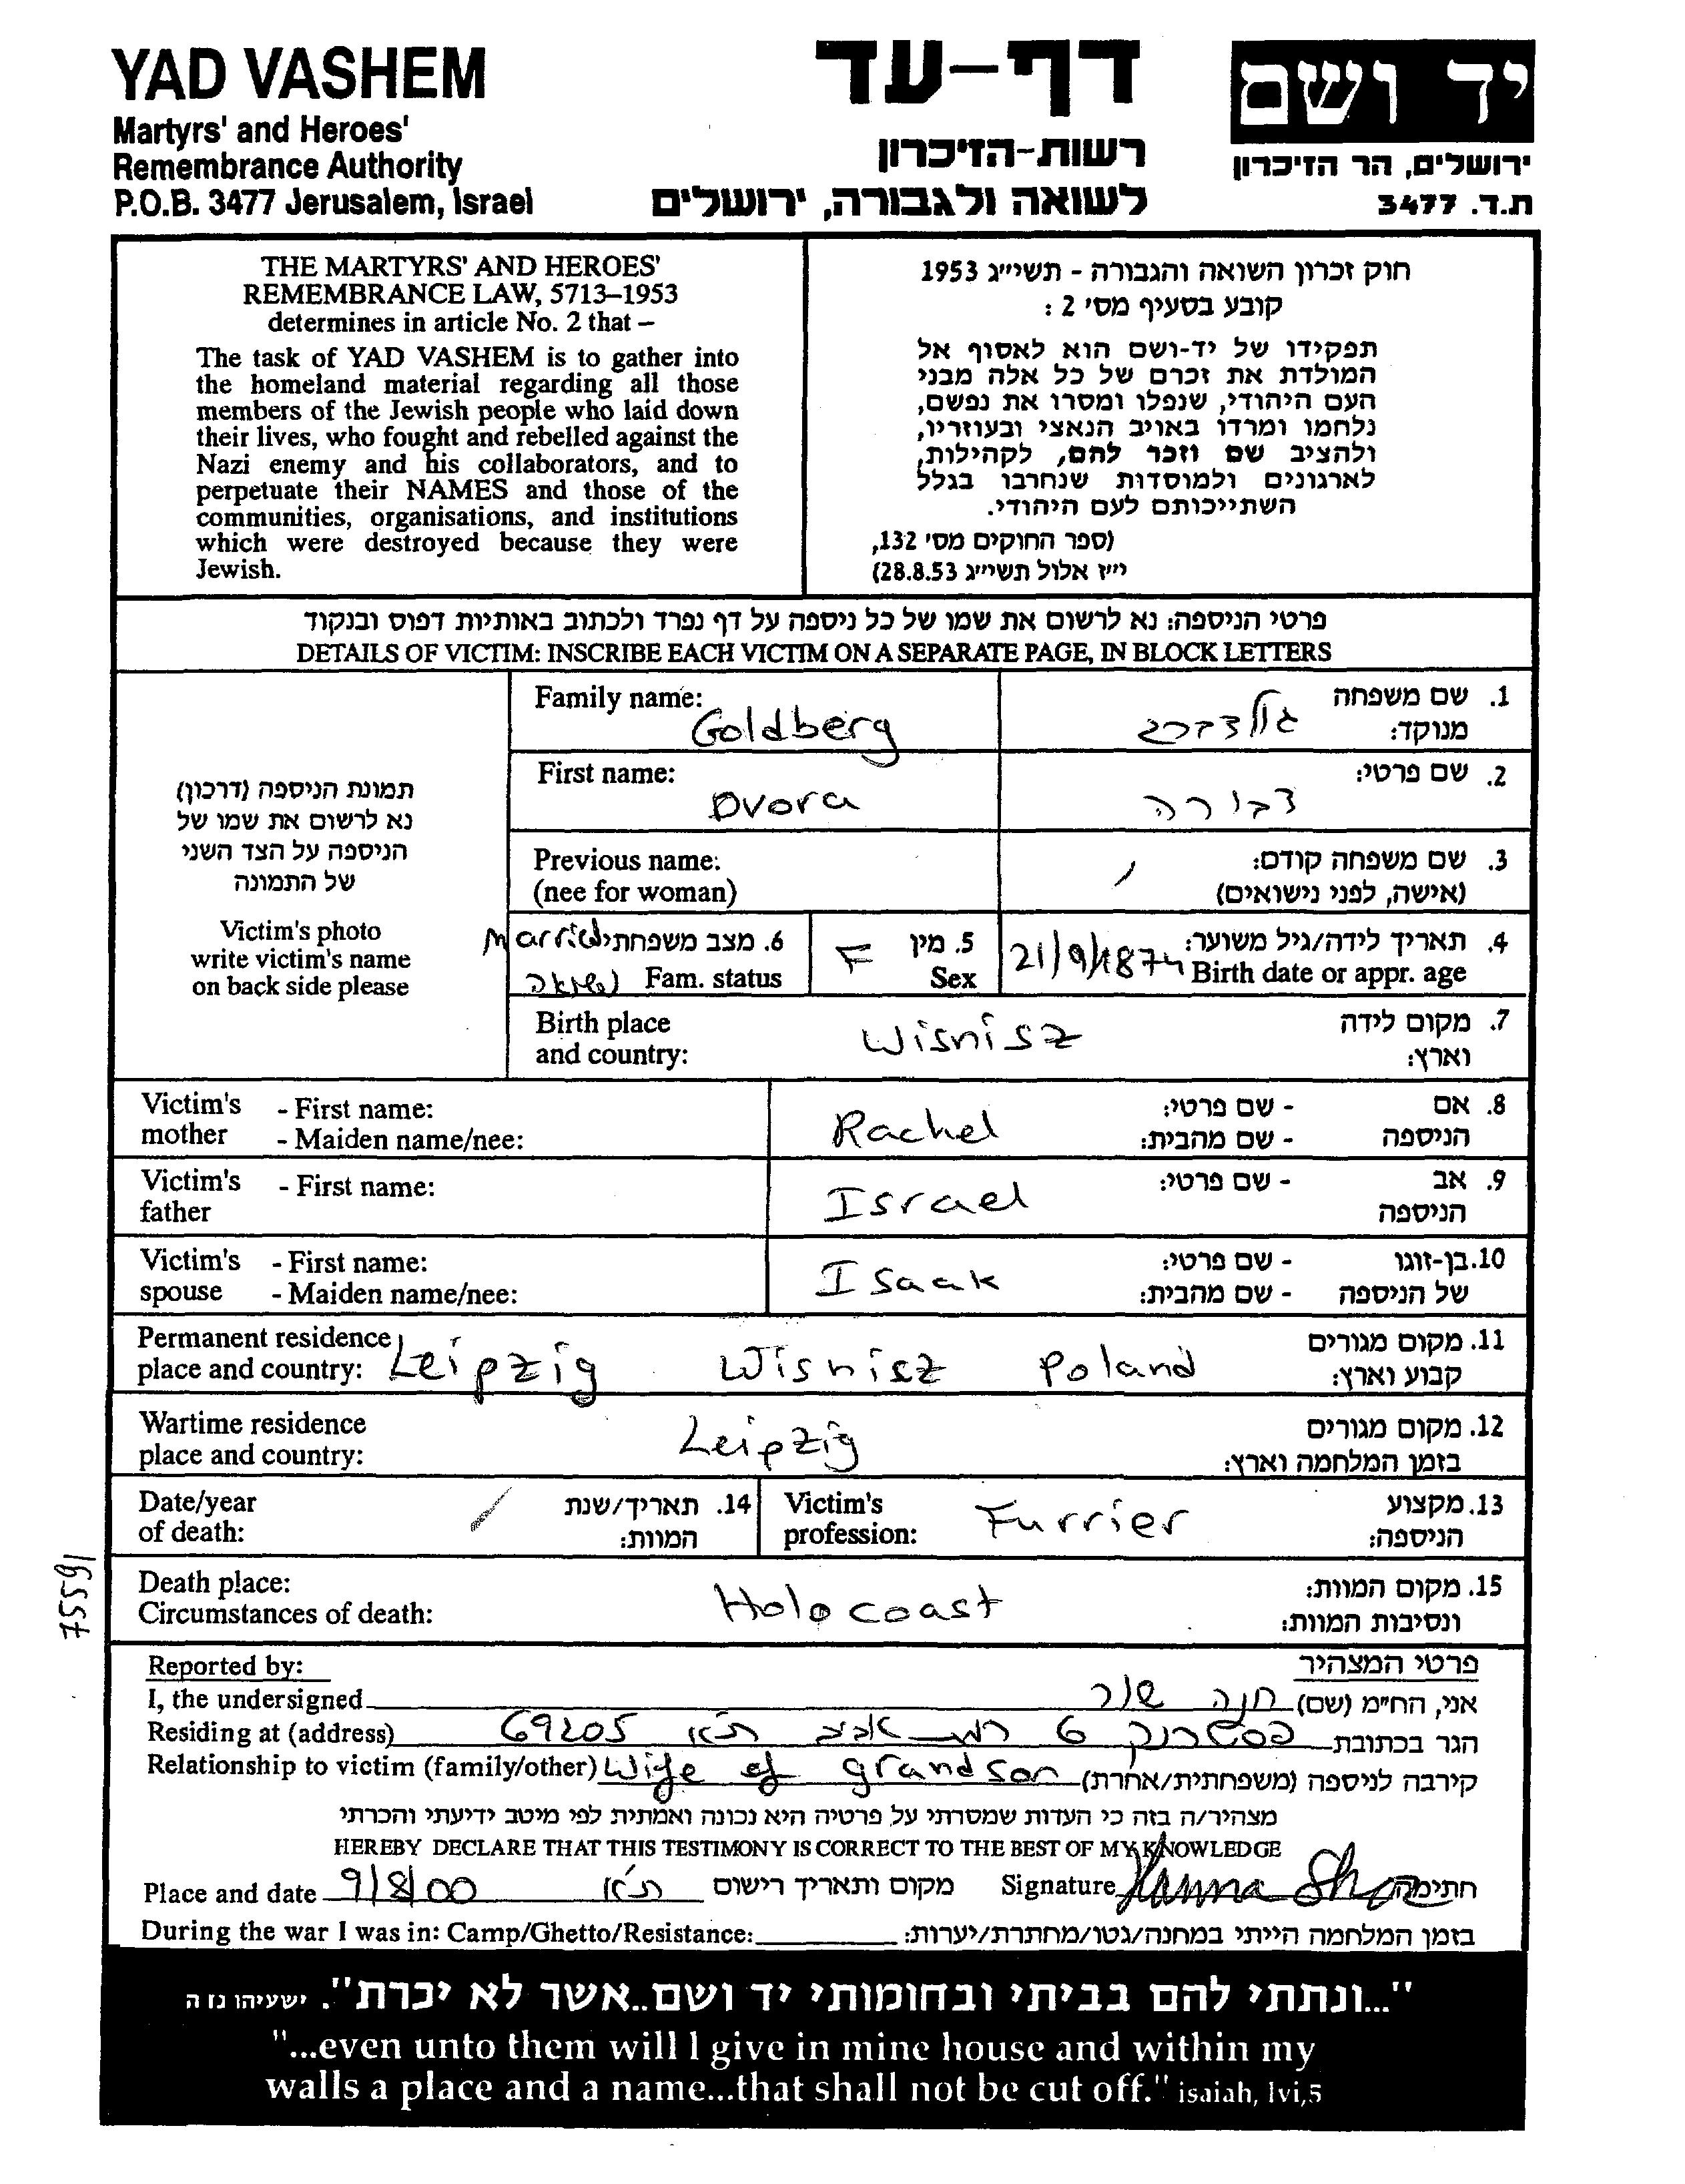 YAD VASHEM
Martyrs' and Heroes'
Remembrance Authority
P.O.B. 3477 Jerusalem, Israel
דף-עד
רשות-הזיכרון
לשואה ולגבורה, ירושלים
יד ושם
ירושלים, הר הזיכרון
ת.ד. 3477
THE MARTYRS' AND HEROES'
REMEMBRANCE LAW, 5713–1953
determines in article No. 2 that –
The task of YAD VASHEM is to gather into
the homeland material regarding all those
members of the Jewish people who laid down
their lives, who fought and rebelled against the
Nazi enemy and his collaborators, and to
perpetuate their NAMES and those of the
communities, organisations, and institutions
which were destroyed because they were
Jewish.
חוק זכרון השואה והגבורה - תשי״ג 1953
קובע בסעיף מס׳ 2 :
תפקידו של יד-ושם הוא לאסוף אל
המולדת את זכרם של כל אלה מבני
העם היהודי, שנפלו ומסרו את נפשם,
נלחמו ומרדו באויב הנאצי ובעוזריו,
ולהציב שם וזכר להם, לקהילות,
לארגונים ולמוסדות שנחרבו בגלל
השתייכותם לעם היהודי.
(ספר החוקים מס׳ 132,
י״ז אלול תשי״ג 28.8.53)
פרטי הניספה: נא לרשום את שמו של כל ניספה על דף נפרד ולכתוב באותיות דפוס ובנקוד
DETAILS OF VICTIM: INSCRIBE EACH VICTIM ON A SEPARATE PAGE, IN BLOCK LETTERS
תמונת הניספה (דרכון)
נא לרשום את שמו של
הניספה על הצד השני
של התמונה
Victim's photo
write victim's name
on back side please
Family name: Goldberg גולדברג 1. שם משפחה
מנוקד:
First name: Dvora דבורה 2. שם פרטי:
Previous name: 3. שם משפחה קודם:
(nee for woman) (אישה, לפני נישואים)
Married 6. מצב משפחתי 5. מין F 21/9/1874 4. תאריך לידה/גיל משוער:
נשואה Fam. status Sex Birth date or appr. age
Birth place Wisnisz 7. מקום לידה
and country: וארץ:
Victim's - First name: Rachel - שם פרטי: 8. אם
mother - Maiden name/nee: - שם מהבית: הניספה
Victim's - First name: Israel - שם פרטי: 9. אב
father הניספה
Victim's - First name: Isaak - שם פרטי: 10. בן-זוגו
spouse - Maiden name/nee: - שם מהבית: של הניספה
Permanent residence 11. מקום מגורים
place and country: Leipzig Wisnisz Poland קבוע וארץ:
Wartime residence Leipzig 12. מקום מגורים
place and country: בזמן המלחמה וארץ:
Date/year 14. תאריך/שנת Victim's Furrier 13. מקצוע
of death: המוות: profession: הניספה:
Death place: Holocoast 15. מקום המוות:
Circumstances of death: ונסיבות המוות:
75591
Reported by: פרטי המצהיר
I, the undersigned חנה שור אני, הח״מ (שם)
Residing at (address) 6 רמת אביב ת״א 69205 הגר בכתובת
Relationship to victim (family/other) Wife of grandson קירבה לניספה (משפחתית/אחרת)
מצהיר/ה בזה כי העדות שמסרתי על פרטיה היא נכונה ואמתית לפי מיטב ידיעתי והכרתי
HEREBY DECLARE THAT THIS TESTIMONY IS CORRECT TO THE BEST OF MY KNOWLEDGE
Place and date 9/8/00 ת״א מקום ותאריך רישום Signature Hanna Shor חתימה
During the war I was in: Camp/Ghetto/Resistance: בזמן המלחמה הייתי במחנה/גטו/מחתרת/יערות:
"...ונתתי להם בביתי ובחומותי יד ושם..אשר לא יכרת". ישעיהו נז ה
"...even unto them will I give in mine house and within my
walls a place and a name...that shall not be cut off." isaiah, lvi,5